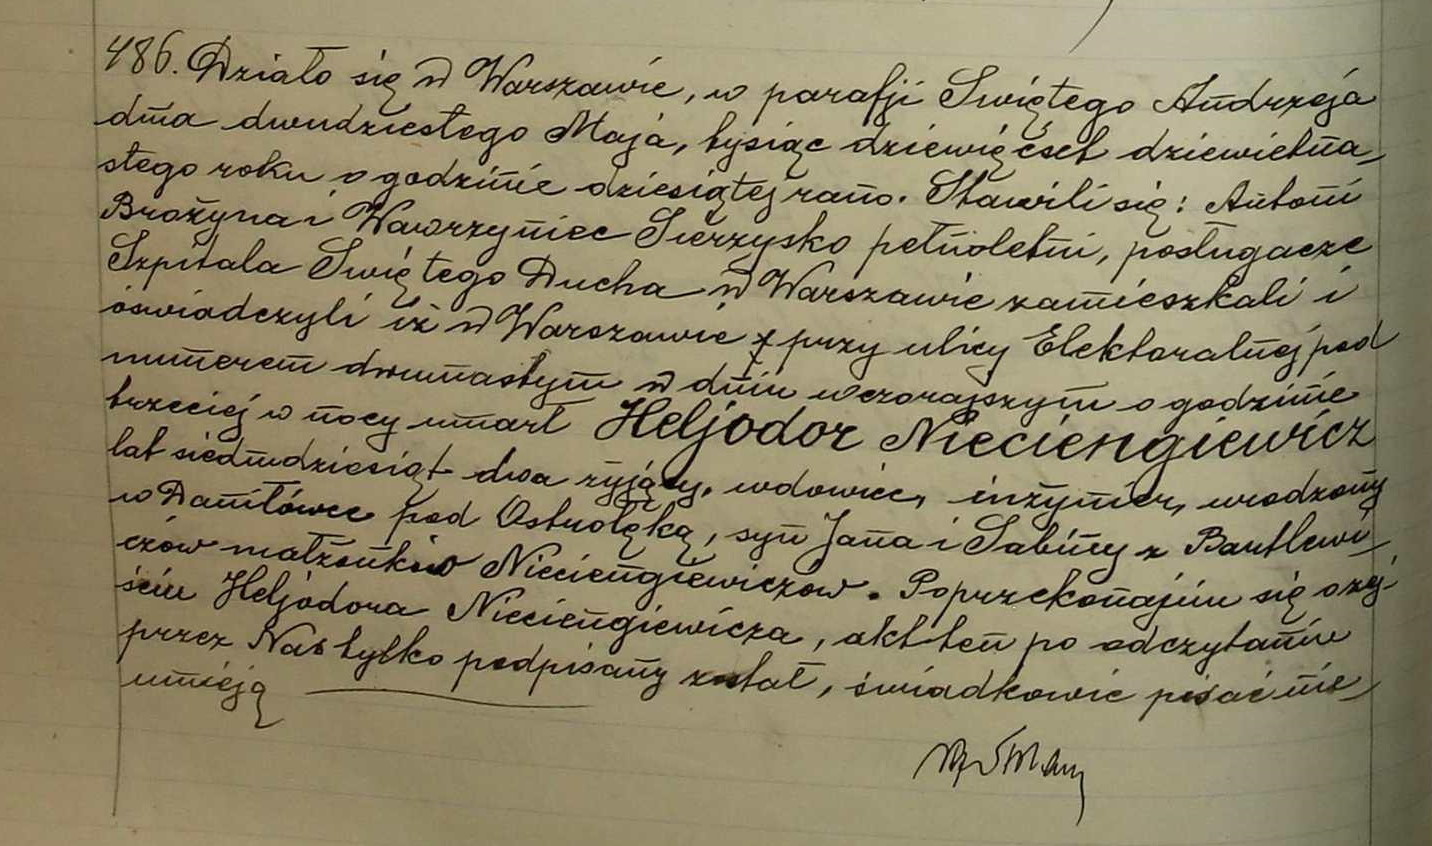 486. Działo się w Warszawie, w parafji Świętego Andrzeja
dnia dwudziestego Maja, tysiąc dziewięćset dziewiętna-
stego roku o godzinie dziesiątej rano. Stawili się: Antoni
Brożyna i Wawrzyniec Sierzysko pełnoletni, posługacze
Szpitala Świętego Ducha w Warszawie zamieszkali i
oświadczyli iż w Warszawie przy ulicy Elektoralnej pod
numerem dwunastym w dniu wczorajszym o godzinie
trzeciej w nocy umarł Heljodor Nieciengiewicz
lat siedmdziesiąt dwa żyjący, wdowiec, inżynier, urodzony
w Daniłówce pod Ostrołęką, syn Jana i Sabiny z Bartlewi-
czów małżonków Nieciengiewiczów. Po przekonaniu się o zej-
ściu Heljodora Nieciengiewicza, akt ten po odczytaniu
przez Nas tylko podpisany został, świadkowie pisać nie
umieją